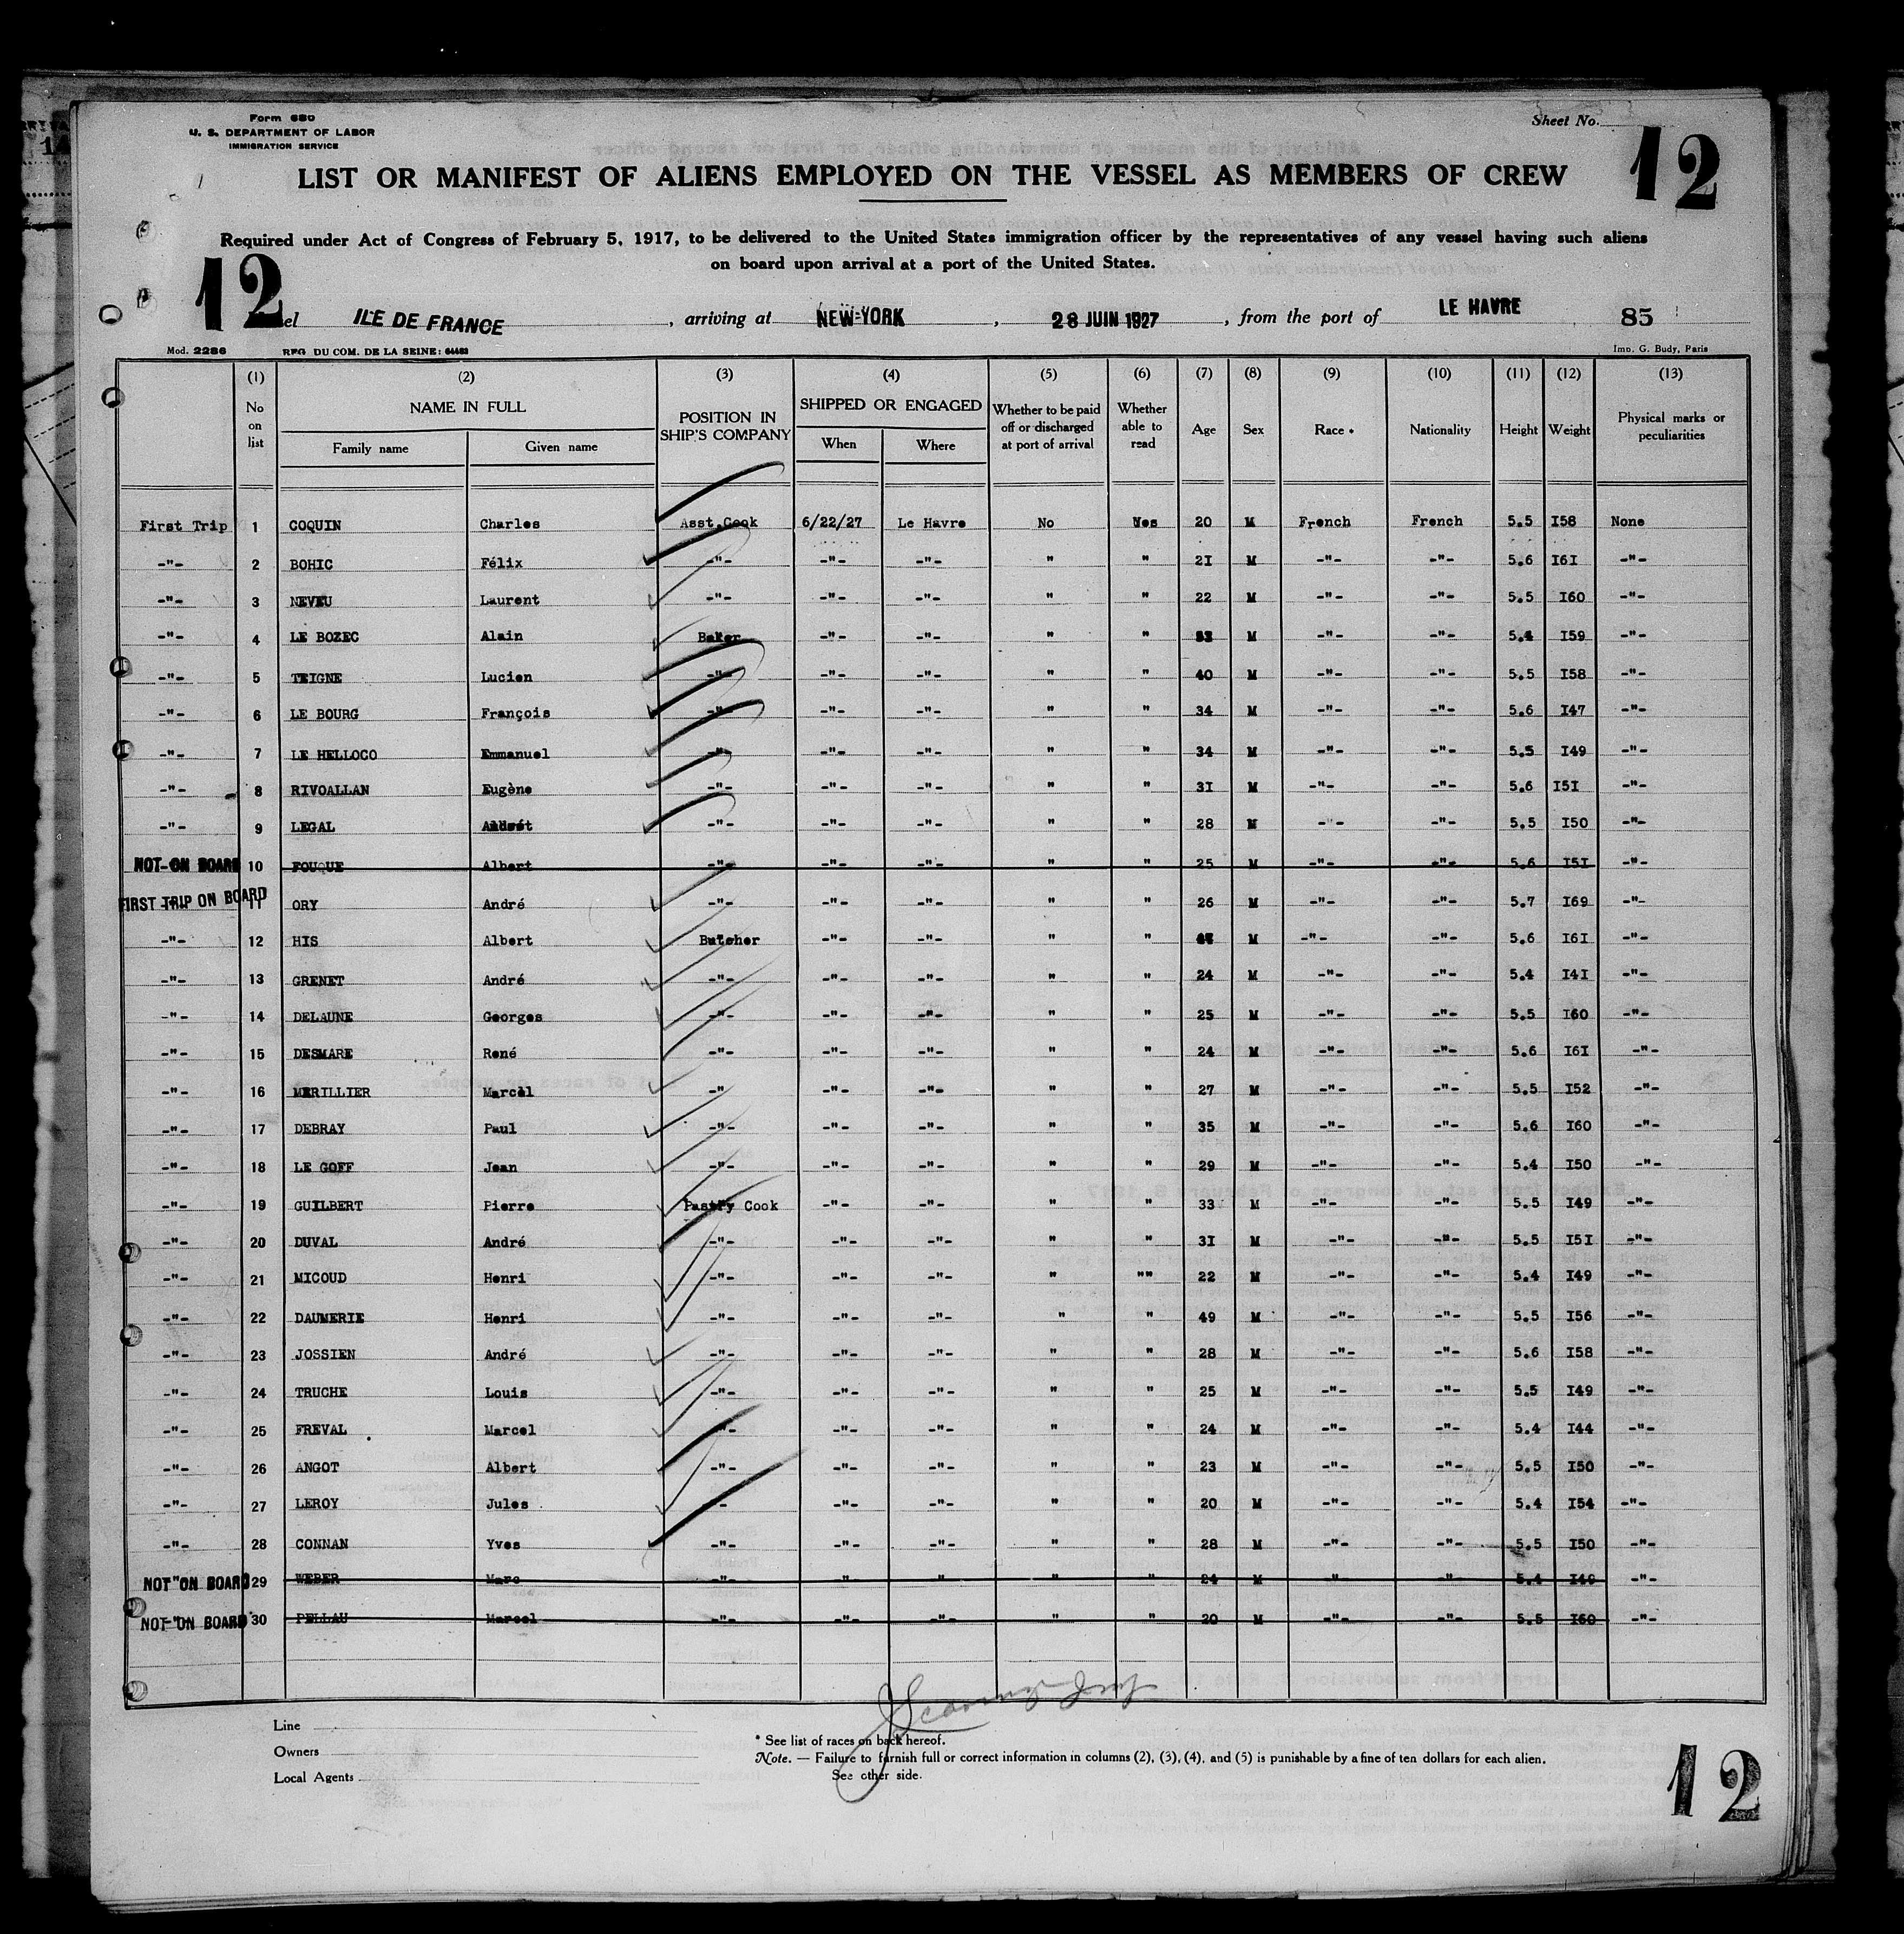 Form 680
U. S. DEPARTMENT OF LABOR
IMMIGRATION SERVICE
Sheet No. 12
LIST OR MANIFEST OF ALIENS EMPLOYED ON THE VESSEL AS MEMBERS OF CREW
Required under Act of Congress of February 5, 1917, to be delivered to the United States immigration officer by the representatives of any vessel having such aliens
on board upon arrival at a port of the United States.
12
el ILE DE FRANCE , arriving at NEW-YORK , 28 JUIN 1927 , from the port of LE HAVRE 85
Mod. 2286 REG. DU COM. DE LA SEINE: 64483 Imp. G. Budy, Paris
(1) (2) (3) (4) (5) (6) (7) (8) (9) (10) (11) (12) (13)
No on list NAME IN FULL Family name Given name POSITION IN SHIP'S COMPANY SHIPPED OR ENGAGED When Where Whether to be paid off or discharged at port of arrival Whether able to read Age Sex Race * Nationality Height Weight Physical marks or peculiarities
First Trip 1 COQUIN Charles Asst.Cook 6/22/27 Le Havre No Yes 20 M French French 5.5 I58 None
-"- 2 BOHIC Félix -"- -"- -"- " " 2I M -"- -"- 5.6 I6I -"-
-"- 3 NEVEU Laurent -"- -"- -"- " " 22 M -"- -"- 5.5 I60 -"-
-"- 4 LE BOZEC Alain Baker -"- -"- " " M -"- -"- 5.4 I59 -"-
-"- 5 TEIGNE Lucien -"- -"- -"- " " 40 M -"- -"- 5.5 I58 -"-
-"- 6 LE BOURG François -"- -"- -"- " " 34 M -"- -"- 5.6 I47 -"-
-"- 7 LE HELLOCO Emmanuel -"- -"- -"- " " 34 M -"- -"- 5.5 I49 -"-
-"- 8 RIVOALLAN Eugène -"- -"- -"- " " 3I M -"- -"- 5.6 I5I -"-
-"- 9 LEGAL -"- -"- -"- " " 28 M -"- -"- 5.5 I50 -"-
NOT ON BOARD 10 FOUQUE Albert -"- -"- -"- " " 25 M -"- -"- 5.6 I5I -"-
FIRST TRIP ON BOARD 11 ORY André -"- -"- -"- " " 26 M -"- -"- 5.7 I69 -"-
-"- 12 HIS Albert Butcher -"- -"- " " M -"- -"- 5.6 I6I -"-
-"- 13 GRENET André -"- -"- -"- " " 24 M -"- -"- 5.4 I4I -"-
-"- 14 DELAUNE Georges -"- -"- -"- " " 25 M -"- -"- 5.5 I60 -"-
-"- 15 DESMARE René -"- -"- -"- " " 24 M -"- -"- 5.6 I6I -"-
-"- 16 MERILLIER Marcel -"- -"- -"- " " 27 M -"- -"- 5.5 I52 -"-
-"- 17 DEBRAY Paul -"- -"- -"- " " 35 M -"- -"- 5.6 I60 -"-
-"- 18 LE GOFF Jean -"- -"- -"- " " 29 M -"- -"- 5.4 I50 -"-
-"- 19 GUILBERT Pierre Pastry Cook -"- -"- " " 33 M -"- -"- 5.5 I49 -"-
-"- 20 DUVAL André -"- -"- -"- " " 3I M -"- -"- 5.5 I5I -"-
-"- 21 MICOUD Henri -"- -"- -"- " "" 22 M -"- -"- 5.4 I49 -"-
-"- 22 DAUMERIE Henri -"- -"- -"- " " 49 M -"- -"- 5.5 I56 -"-
-"- 23 JOSSIEN André -"- -"- -"- " " 28 M -"- -"- 5.6 I58 -"-
-"- 24 TRUCHE Louis -"- -"- -"- " " 25 M -"- -"- 5.5 I49 -"-
-"- 25 FREVAL Marcel -"- -"- -"- " " 24 M -"- -"- 5.4 I44 -"-
-"- 26 ANGOT Albert -"- -"- -"- " " 23 M -"- -"- 5.5 I50 -"-
-"- 27 LEROY Jules -"- -"- -"- " " 20 M -"- -"- 5.4 I54 -"-
-"- 28 CONNAN Yves -"- -"- -"- " " 28 M -"- -"- 5.5 I50 -"-
NOT ON BOARD 29 WEBER Marc -"- -"- -"- " " 24 M -"- -"- 5.4 -"-
NOT ON BOARD 30 PELLAU Marcel -"- -"- -"- " " 20 M -"- -"- 5.5 I60 -"-
Line
Owners
Local Agents
* See list of races on back hereof.
Note. — Failure to furnish full or correct information in columns (2), (3), (4), and (5) is punishable by a fine of ten dollars for each alien.
See other side.
12